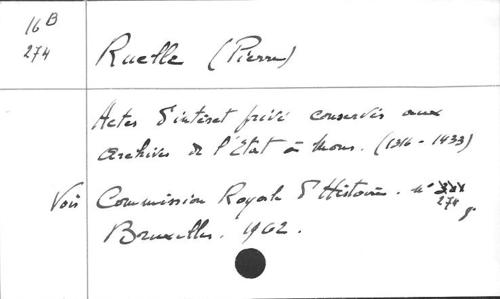 16 B
274
Ruelle (Pierre)
Actes d'intérêt privé conservés aux
Archives de l'Etat à Mons. (1316 - 1433)
Voir Commission Royale d'Histoire. n°
274
Bruxelles. 1962.